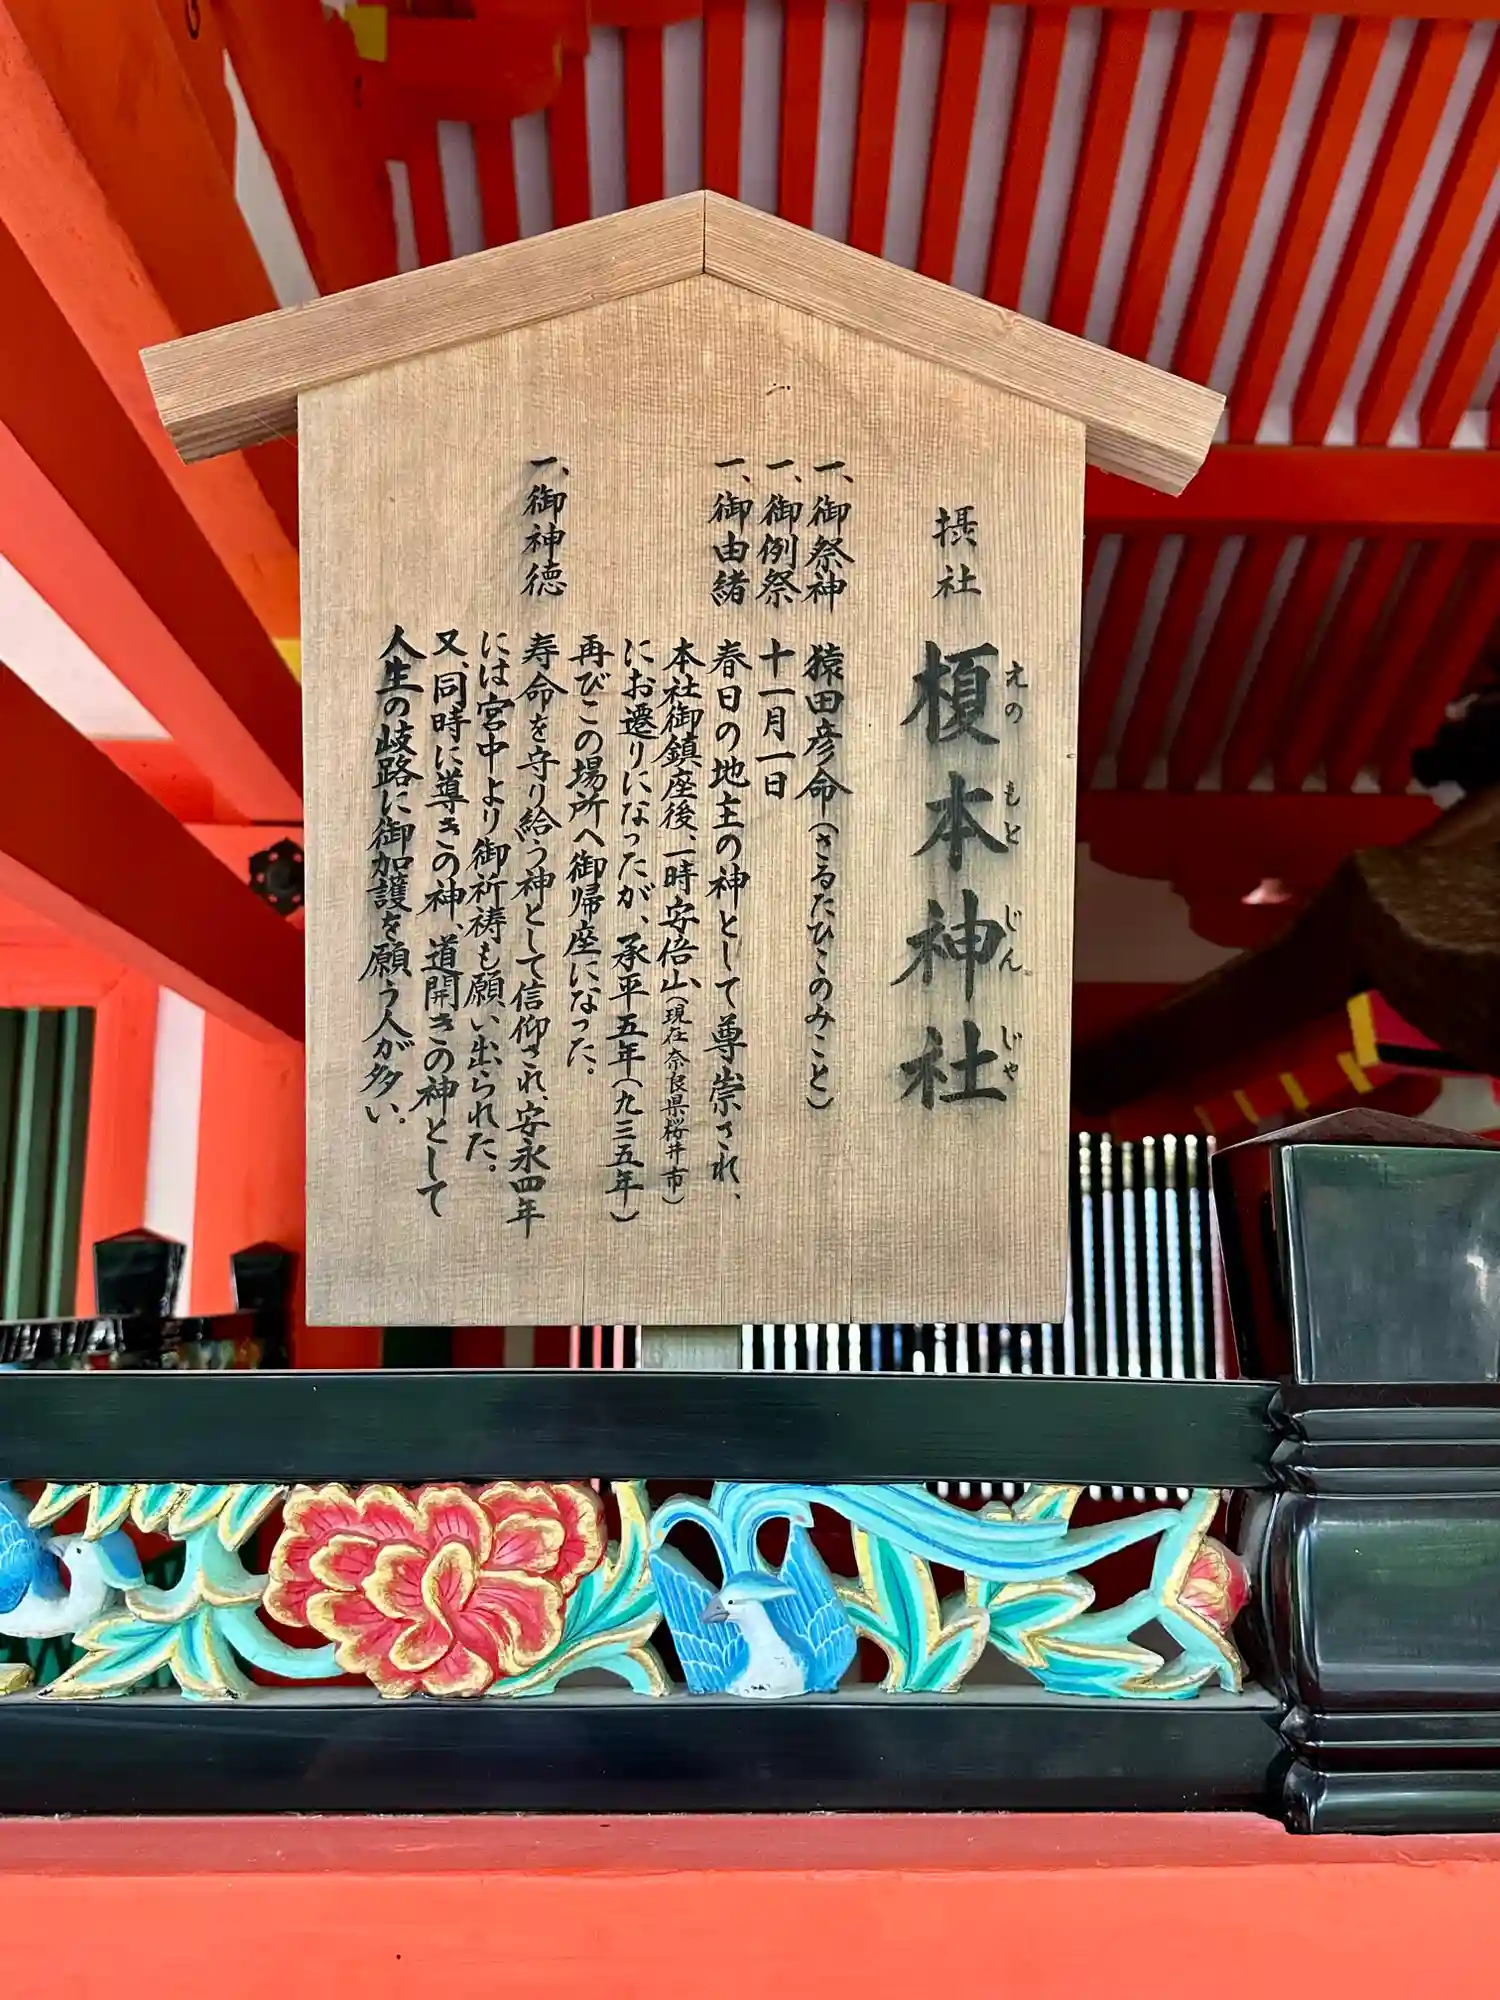 摂社 榎本神社
えのもとじんじゃ
一、御祭神 猿田彦命(さるたひこのみこと)
一、御例祭 十一月一日
一、御由緒 春日の地主の神として尊崇され、
本社御鎮座後、一時安倍山(現在奈良県桜井市)
にお遷りになったが、承平五年(九三五年)
再びこの場所へ御帰座になった。
一、御神徳 寿命を守り給う神として信仰され、安永四年
には宮中より御祈祷も願い出られた。
又、同時に導きの神、道開きの神として
人生の岐路に御加護を願う人が多い。